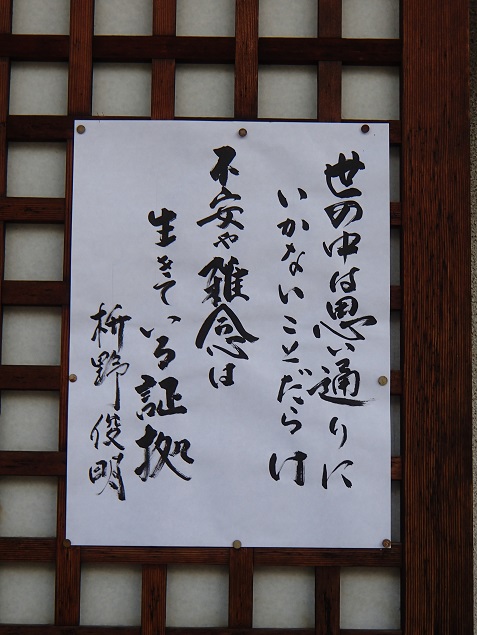 世の中は思い通りに
いかないことだらけ
不安や雑念は
生きている証拠
枡野俊明